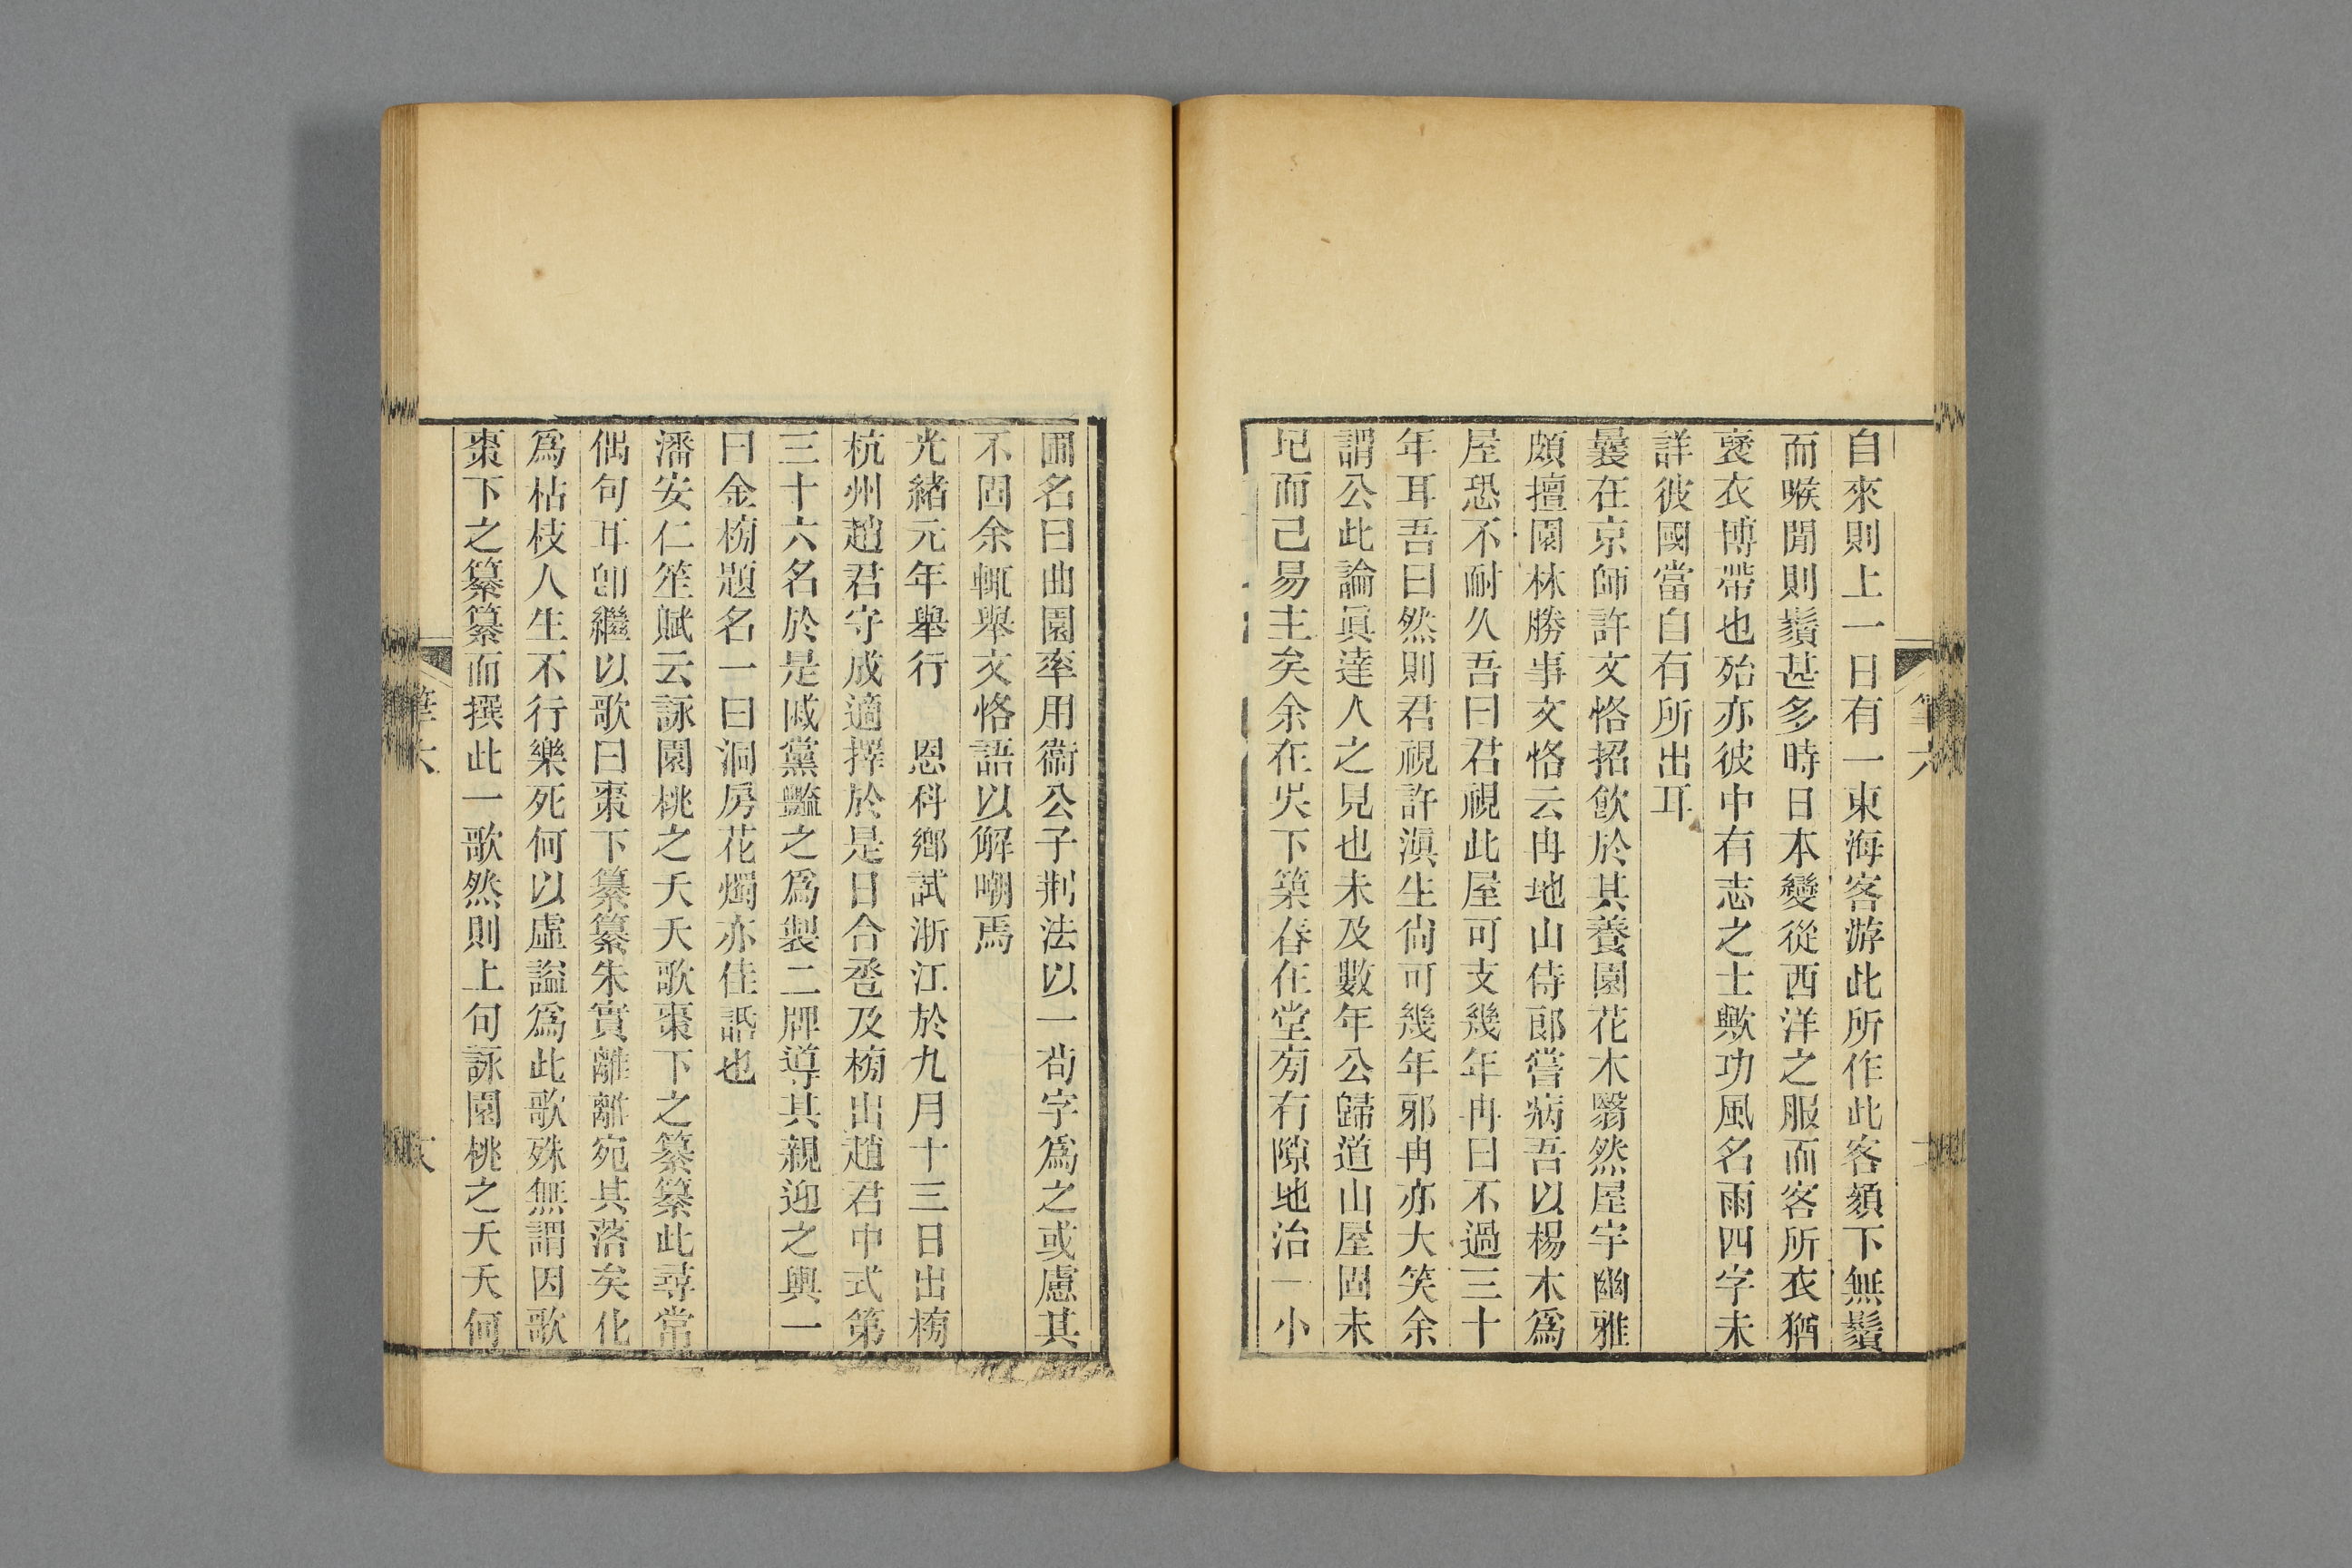 自來則上一日有一東海客游此所作此客額下無鬚
而喉閒則鬚甚多時日本變從西洋之服而客所衣猶
襃衣博帶也殆亦彼中有志之士歟功風名雨四字未
詳彼國當自有所出耳
曩在京師許文恪招飮於其養園花木翳然屋宇幽雅
頗擅園林勝事文恪云冉地山侍郞嘗病吾以楊木爲
屋恐不耐久吾曰君視此屋可支幾年冉曰不過三十
年耳吾曰然則君視許滇生尙可幾年邪冉亦大笑余
謂公此論眞達人之見也未及數年公歸道山屋固未
圮而已易主矣余在吳下築春在堂旁有隙地治一小
圃名曰曲園率用衞公子荆法以一苟字爲之或慮其
不固余輒舉文恪語以解嘲焉
光緒元年舉行 恩科鄕試浙江於九月十三日出榜
杭州趙君守成適擇於是日合卺及榜出趙君中式第
三十六名於是戚黨豔之爲製二牌導其親迎之輿一
曰金榜題名一曰洞房花燭亦佳話也
潘安仁笙賦云詠園桃之夭夭歌棗下之纂纂此尋常
偶句耳卽繼以歌曰棗下纂纂朱實離離宛其落矣化
爲枯枝人生不行樂死何以虛謚爲此歌殊無謂因歌
棗下之纂纂而撰此一歌然則上句詠園桃之夭夭何
筆六